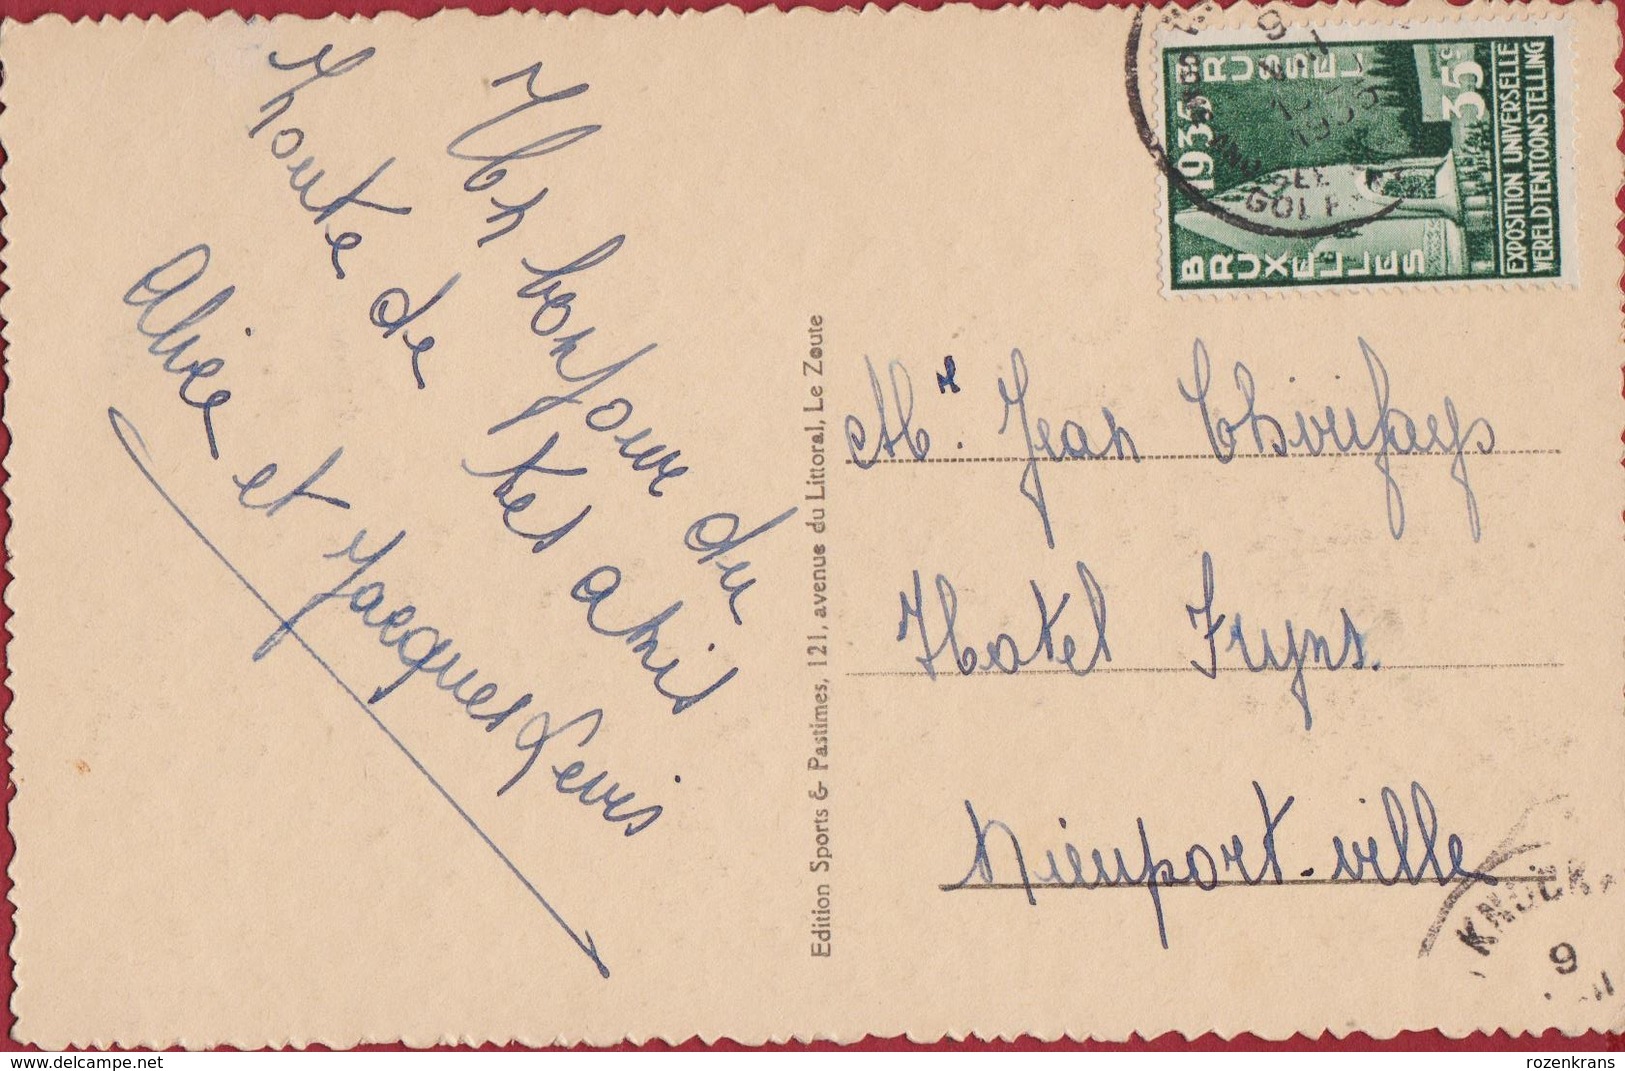 Un bonjour du
Zoute de tes amis
Aliee et Jacques Levis
Edition Sports & Pastimes, 121, avenue du Littoral, Le Zoute
BRUSSEL
1935
BRUXELLES
35c
EXPOSITION UNIVERSELLE
WERELDTENTOONSTELLING
GOLF
Mr. Jean
Hotel Fryns.
Nieuport-ville
KNOCK
9
© delcampe.net
rozenkrans